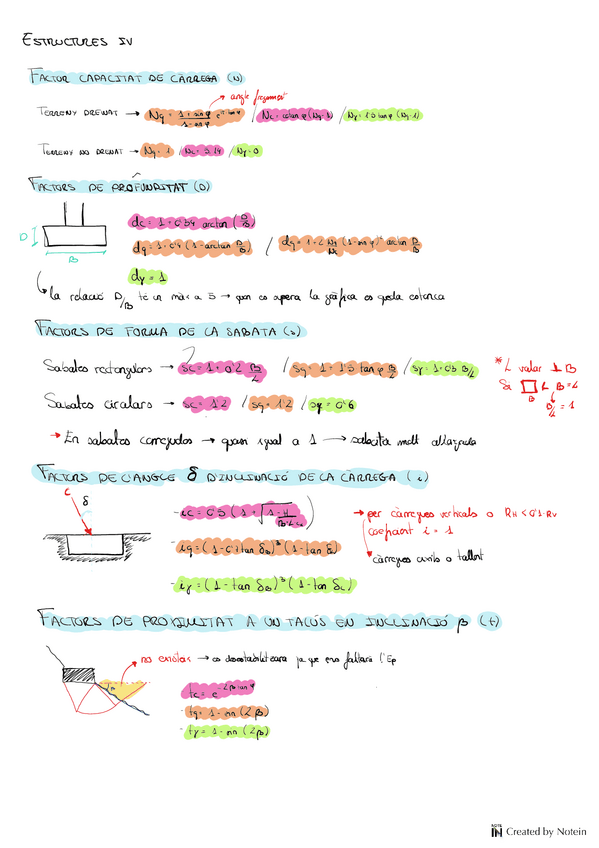 ESTRUCTURES IV
FACTOR CAPACITAT DE CÀRREGA (N)
angle fregament
TERRENY DRENAT → Nq = 1 + sin φ / 1 - sin φ e^π·tan φ / Nc = cotan φ (Nq-1) / Nγ = 1'5 tan φ (Nq-1)
TERRENY NO DRENAT → Nq = 1 / Nc = 5'14 / Nγ = 0
FACTORS DE PROFUNDITAT (D)
dc = 1 + 0'34 arctan (D/B)
D
dq = 1 + 0'4 (1 - arctan D/B) / dq = 1 + 2 Nq/Nc (1 - sin φ)² arctan D/B
B
dγ = 1
la relació D/B té un màx a 5 → quan es supera la gràfica es queda estanca
FACTORS DE FORMA DE LA SABATA (s)
Sabates rectangulars → sc = 1 + 0'2 B/L / sq = 1 + 1'5 tan φ B/L / sγ = 1 - 0'3 B/L
* L valor ⊥ B
Si L B = L
B
B/L = 1
Sabates circulars → sc = 1'2 / sq = 1'2 / sγ = 0'6
→ En sabates corregudes → quan igual a 1 → sabata molt allargada
FACTORS DE L'ANGLE δ D'INCLINACIÓ DE LA CÀRREGA (i)
C
δ
- ic = 0'5 (1 + √1 - H / B·L·c)
→ per càrregues verticals o RH < 0'1·RV
coeficient i = 1
- iq = (1 - 0'7 tan δB)³ (1 - tan δL)
càrregues axils o tallant
- iγ = (1 - tan δB)³ (1 - tan δL)
FACTORS DE PROXIMITAT A UN TALÚS EN INCLINACIÓ β (t)
no existeix → es desestabilitzarà ja que ens faltarà l'Ep
tc = e^-2β tan φ
- tq = 1 - sin (2β)
- tγ = 1 - sin (2β)
NOTE IN Created by Notein